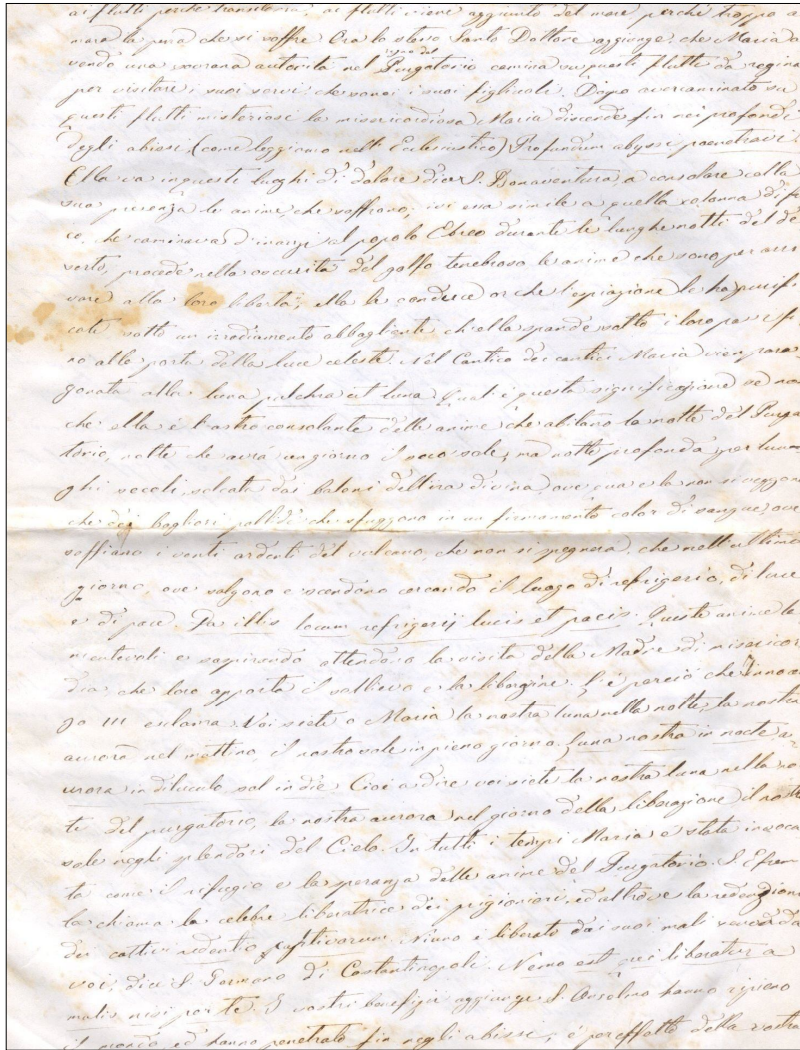 ai flutti perché transitoria, ai flutti viene aggiunto del mare perché troppo a
mara la pena che si soffre Ora lo stesso Santo Dottore aggiunge, che Maria a
vendo una sovrana autorità nel regno del Purgatorio camina su questi flutti da regina
per visitare i suoi servi che sono i suoi figli
questi flutti misteriosi la misericordiosa Maria discende fin nei profondi
degli abissi, (come leggiamo nell' Eclesiastico) Profundum abyssi penetravi.
Ella va in questi luoghi di dolore dice S. Bonaventura, a consolare colla
sua presenza le anime, che soffrono, ivi essa simile a quella colonna di fo
co, che caminava d'innanzi al popolo Ebreo durante le lunghe notti del de
serto, precede nella oscurità del golfo tenebroso le anime che sono per arri
vare alla loro libertà; ella le conduce or che l'espiazione le ha purifi
cate sotto un irradiamento abbagliente, ch'ella spande sotto i loro passi fi
no alle porte della luce celeste. Nel Cantico dei cantici Maria vien para
gonata alla luna pulchra ut luna Qual'è questa significazione se non
che ella è l'astro consolante delle anime che abitano la notte del Purga
torio, notte che avrà un giorno il suo sole, ma notte profonda per lun
ghi secoli, solcata dai baleni dell'ira divina, ove qua e la non si veggono
che dei bagliori pallidi che sfuggono in un firmamento color di sangue, ove
soffiano i venti ardenti del vulcano, che non si spegnerà, che nell'ultimo
giorno, ove salgono e scendono cercando il luogo di refrigerio, di luce
e di pace. Da illis locum refrigerij lucis et pacis. Queste anime la
mentevoli e sospirando attendono la visita della Madre di misericor
dia, che loro apporta il sollievo e la E' perciò che Innocen
zo III esclama. Voi siete o Maria la nostra luna nella notte, la nostra
aurora nel mattino, il nostro sole in pieno giorno. Luna nostra in nocte a
urora in diluculo, sol in die Cioè a dire voi siete la nostra luna nella not
te del purgatorio, la nostra aurora nel giorno della liberazione il nostro
sole negli splendori del Cielo. In tutti i tempi Maria è stata invoca
ta come il rifugio e la speranza delle anime del Purgatorio. S. Efrem
la chiama la celebre liberatrice dei prigionieri, ed altrove la redenzione
dei cattivi redentio captivorum. Niuno è liberato dai suoi mali se non da
voi, dice S. Germano di Costantinopoli. Nemo est qui liberatur a
malis nisi per te. I vostri benefizii aggiunge S. Anselmo hanno ripieno
il mondo, ed hanno penetrato fin negli abissi, è per effetto della vostra